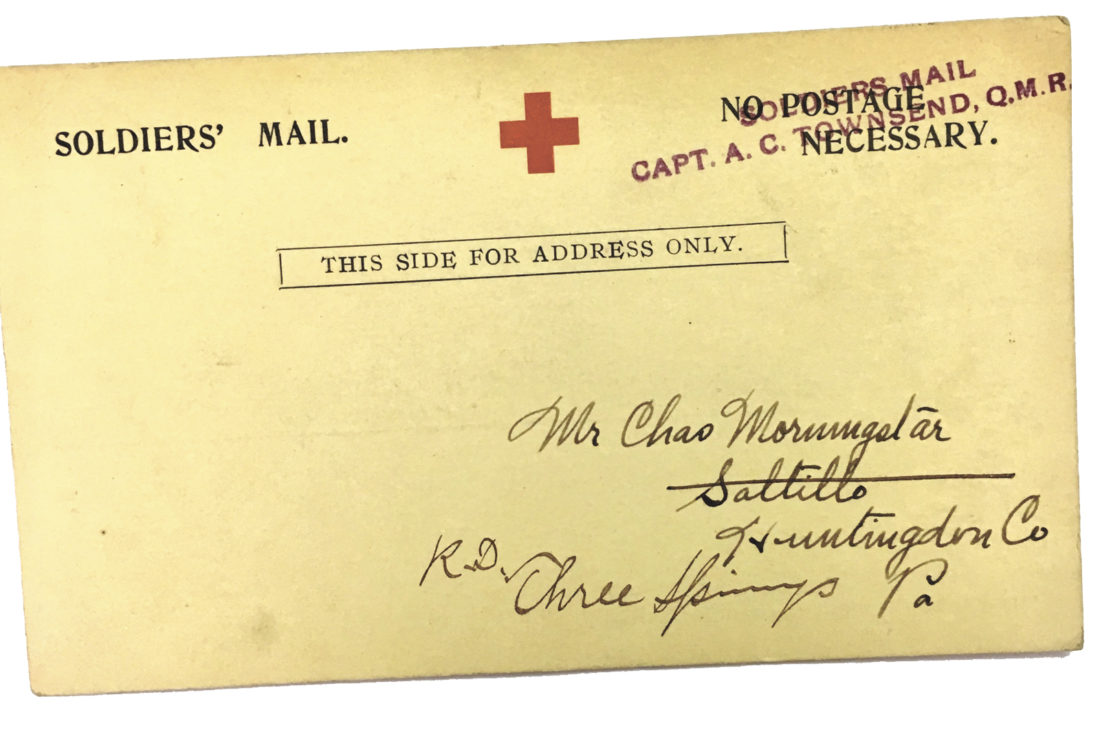 SOLDIERS' MAIL.
NO POSTAGE
NECESSARY.
SOLDIERS MAIL
CAPT. A. C. TOWNSEND, Q.M.R.
THIS SIDE FOR ADDRESS ONLY.
Mr Chas Morningstar
Saltillo
Huntingdon Co
R.D. Three Springs Pa